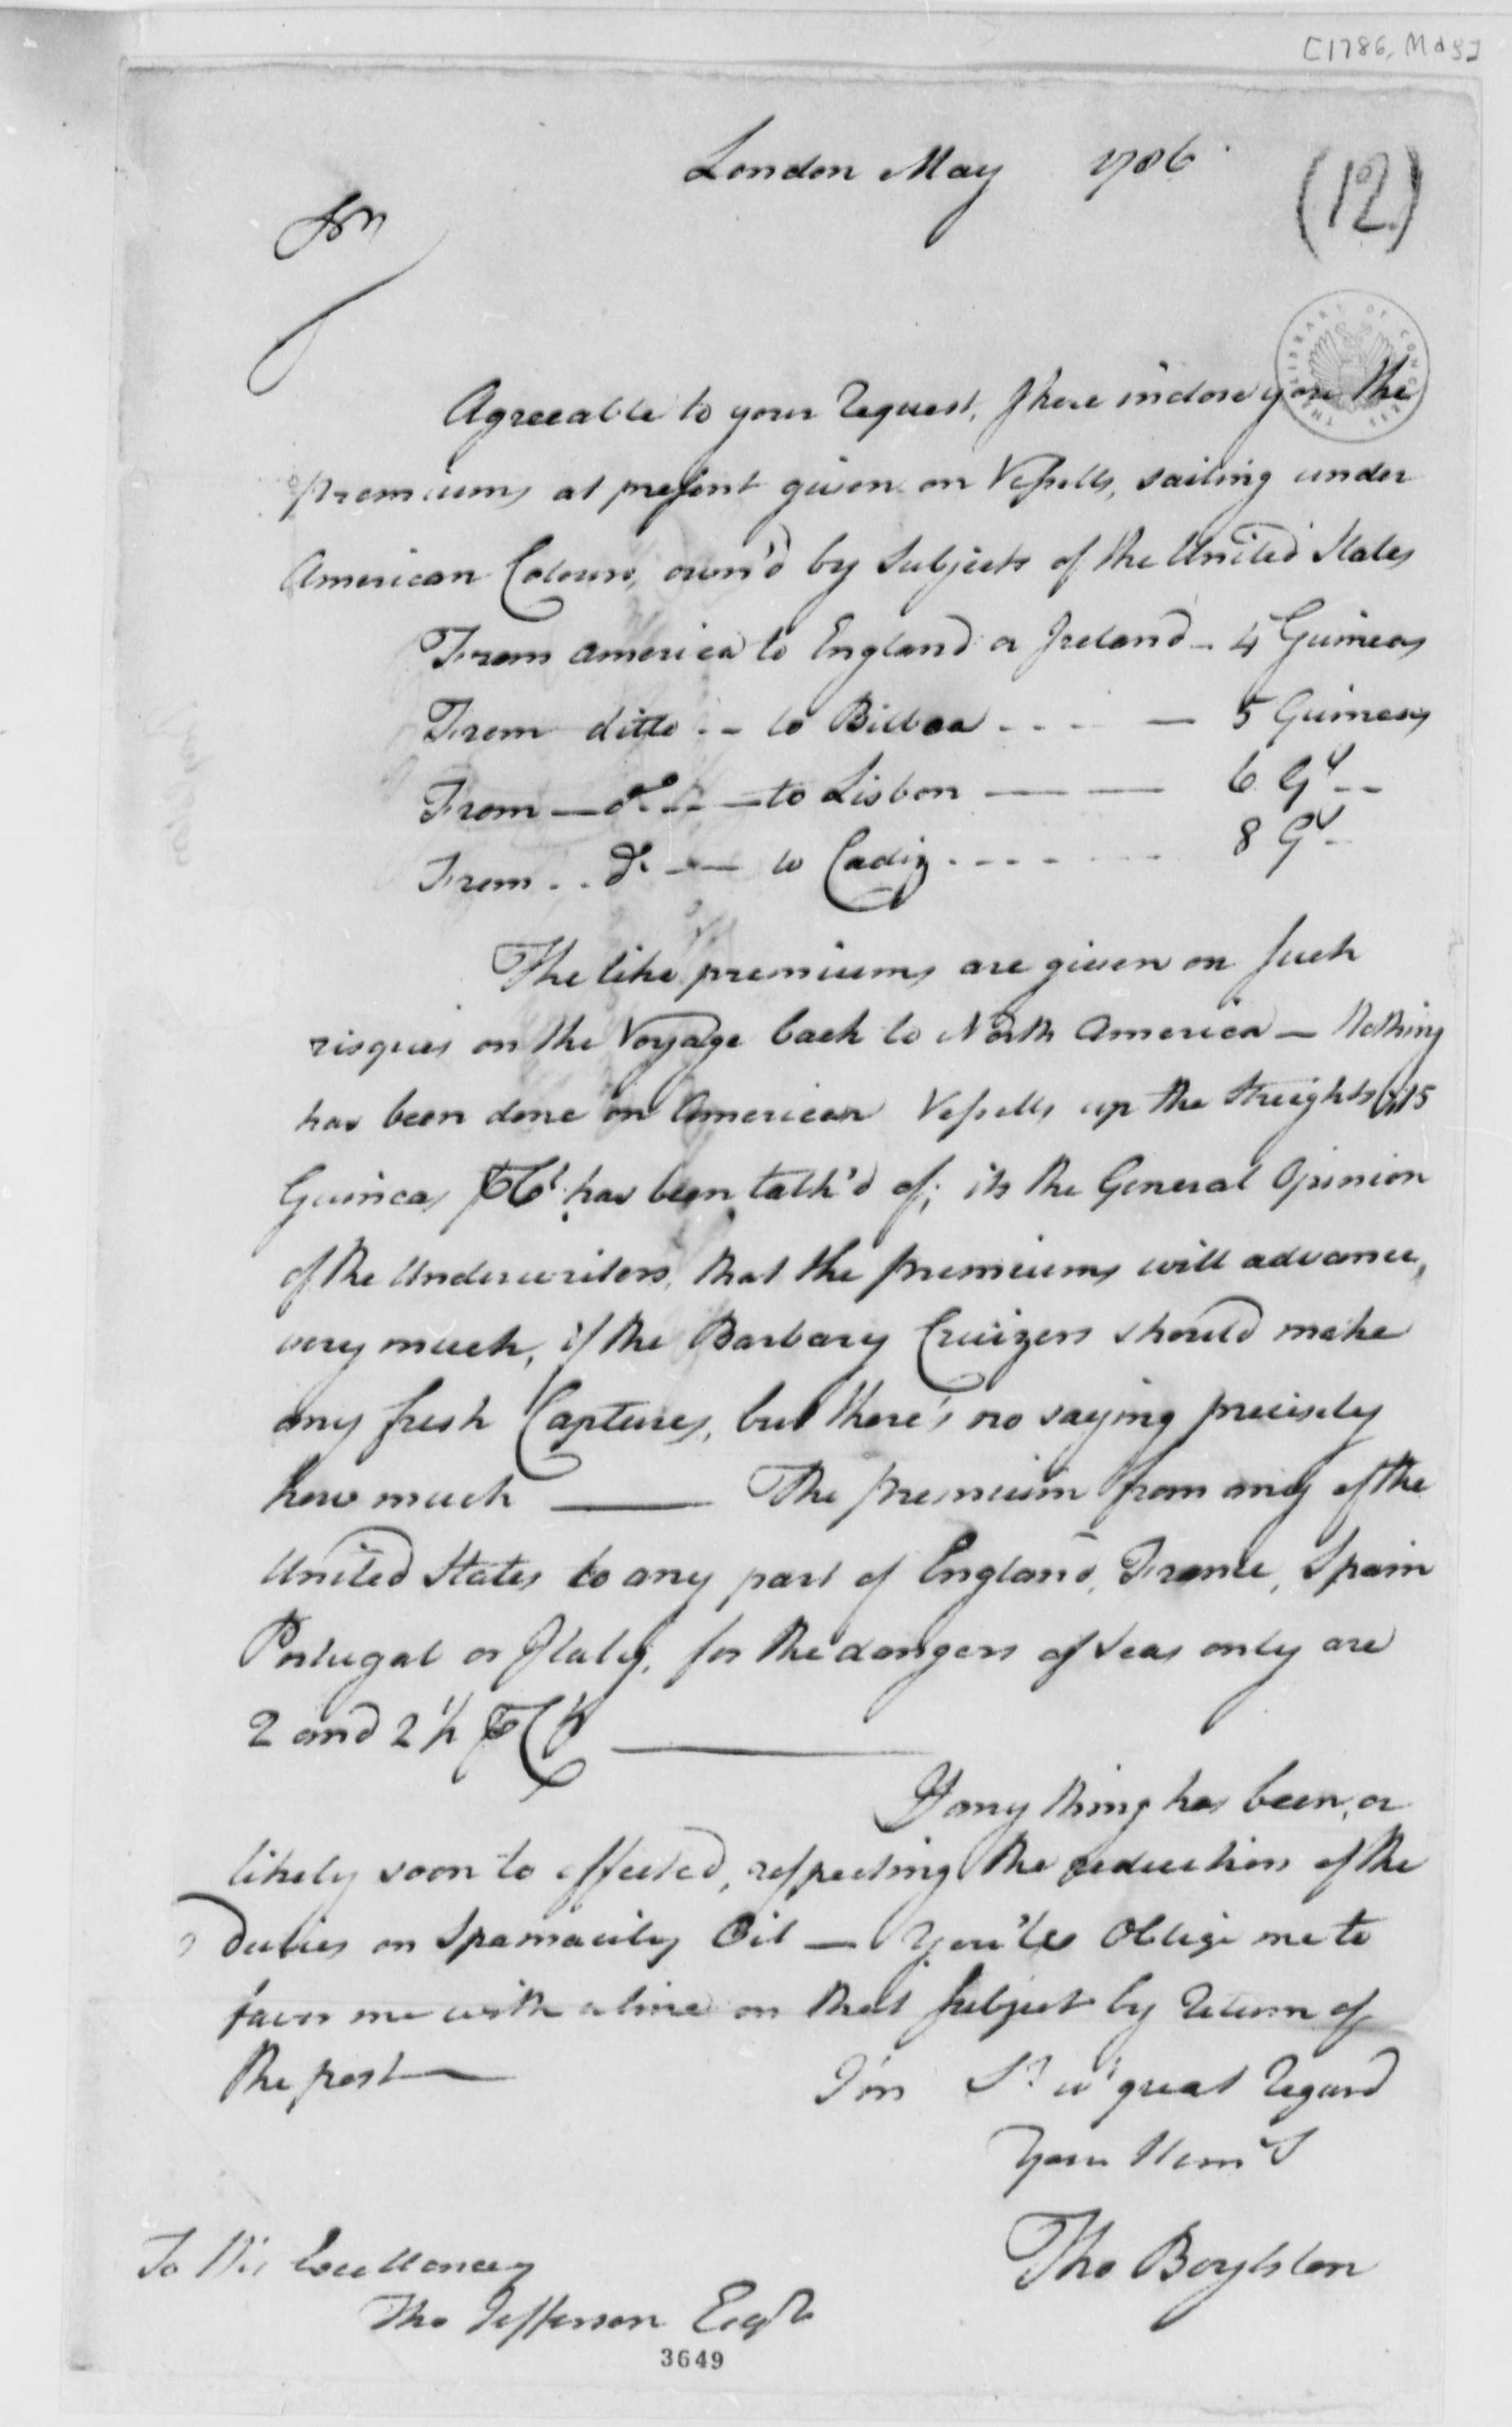 [1786, May]
London May 1786
(12)
Sir
THE LIBRARY OF CONGRESS
Agreeable to your Request, I here inclose you the
premiums at present given on Vessells, sailing under
American Colours, own'd by Subjects of the United States
From america to England or Ireland - 4 Guineas
From ditto - - to Bilboa - - - - 5 Guineas
From - do - - to Lisbon - - 6 Gs - -
From - - do - - to Cadiz - - - - - - 8 Gs -
The like premiums are given on such
risques on the Voyage back to North America - Nothing
has been done on American Vessells up the Streights, 15
Guineas P Ct has been talk'd of; its the General Opinion
of the Underwriters, that the premiums will advance,
very much, if the Barbary Cruizers should make
any fresh Captures, but there's no saying precisely
how much — The premium from any of the
United States to any part of England, France, Spain
Portugal or Italy, for the dangers of Seas only are
2 and 2½ P Ct —
If any thing has been, or
likely soon to effected, respecting the reduction of the
Duties on Spamacity Oil — You'll Oblige me to
favor me with a line on that subject by Return of
the post —
I'm Sr wt great Regard
Your Hem S
Tho Boylston
To His Excellancy
Tho Jefferson Esqr
3649